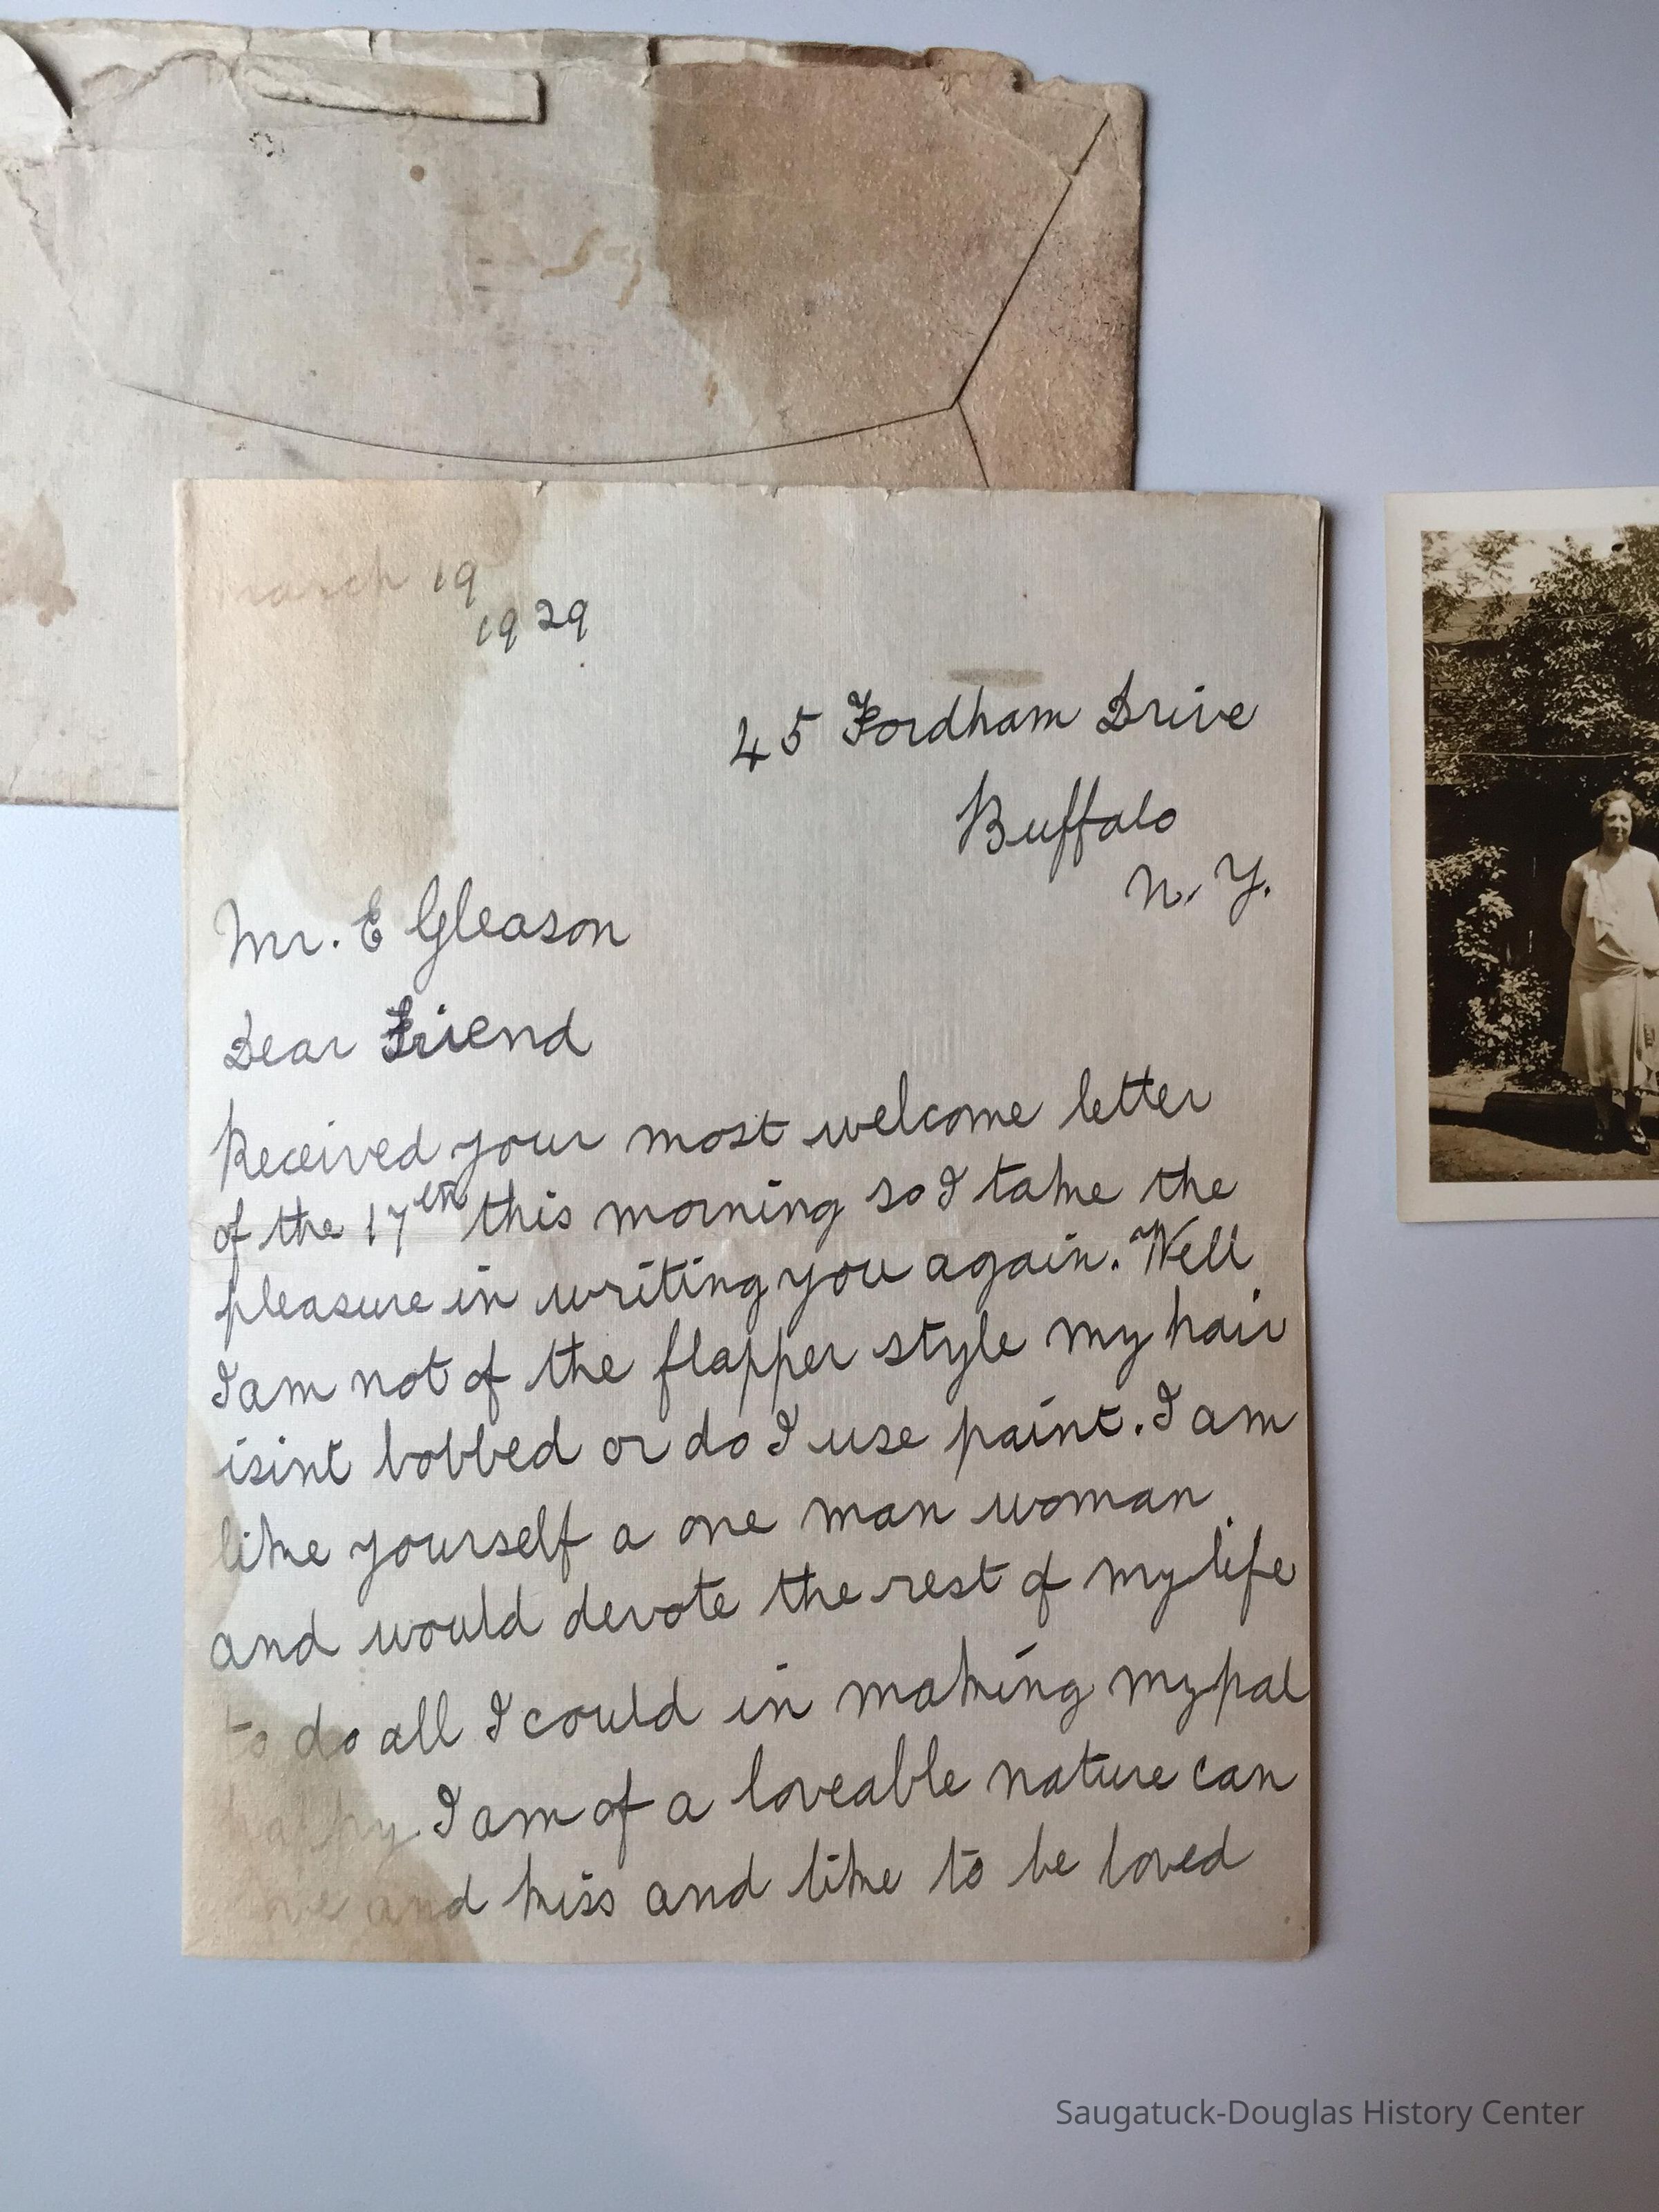 March 19
1929
45 Fordham Drive
Buffalo
N. Y.
Mr. E Gleason
Dear Friend
Received your most welcome letter
of the 17th this morning so I take the
pleasure in writing you again. Well
I am not of the flapper style my hair
isint bobbed or do I use paint. I am
like yourself a one man woman
and would devote the rest of my life
to do all I could in making my pal
happy. I am of a loveable nature can
and kiss and like to be loved
Saugatuck-Douglas History Center